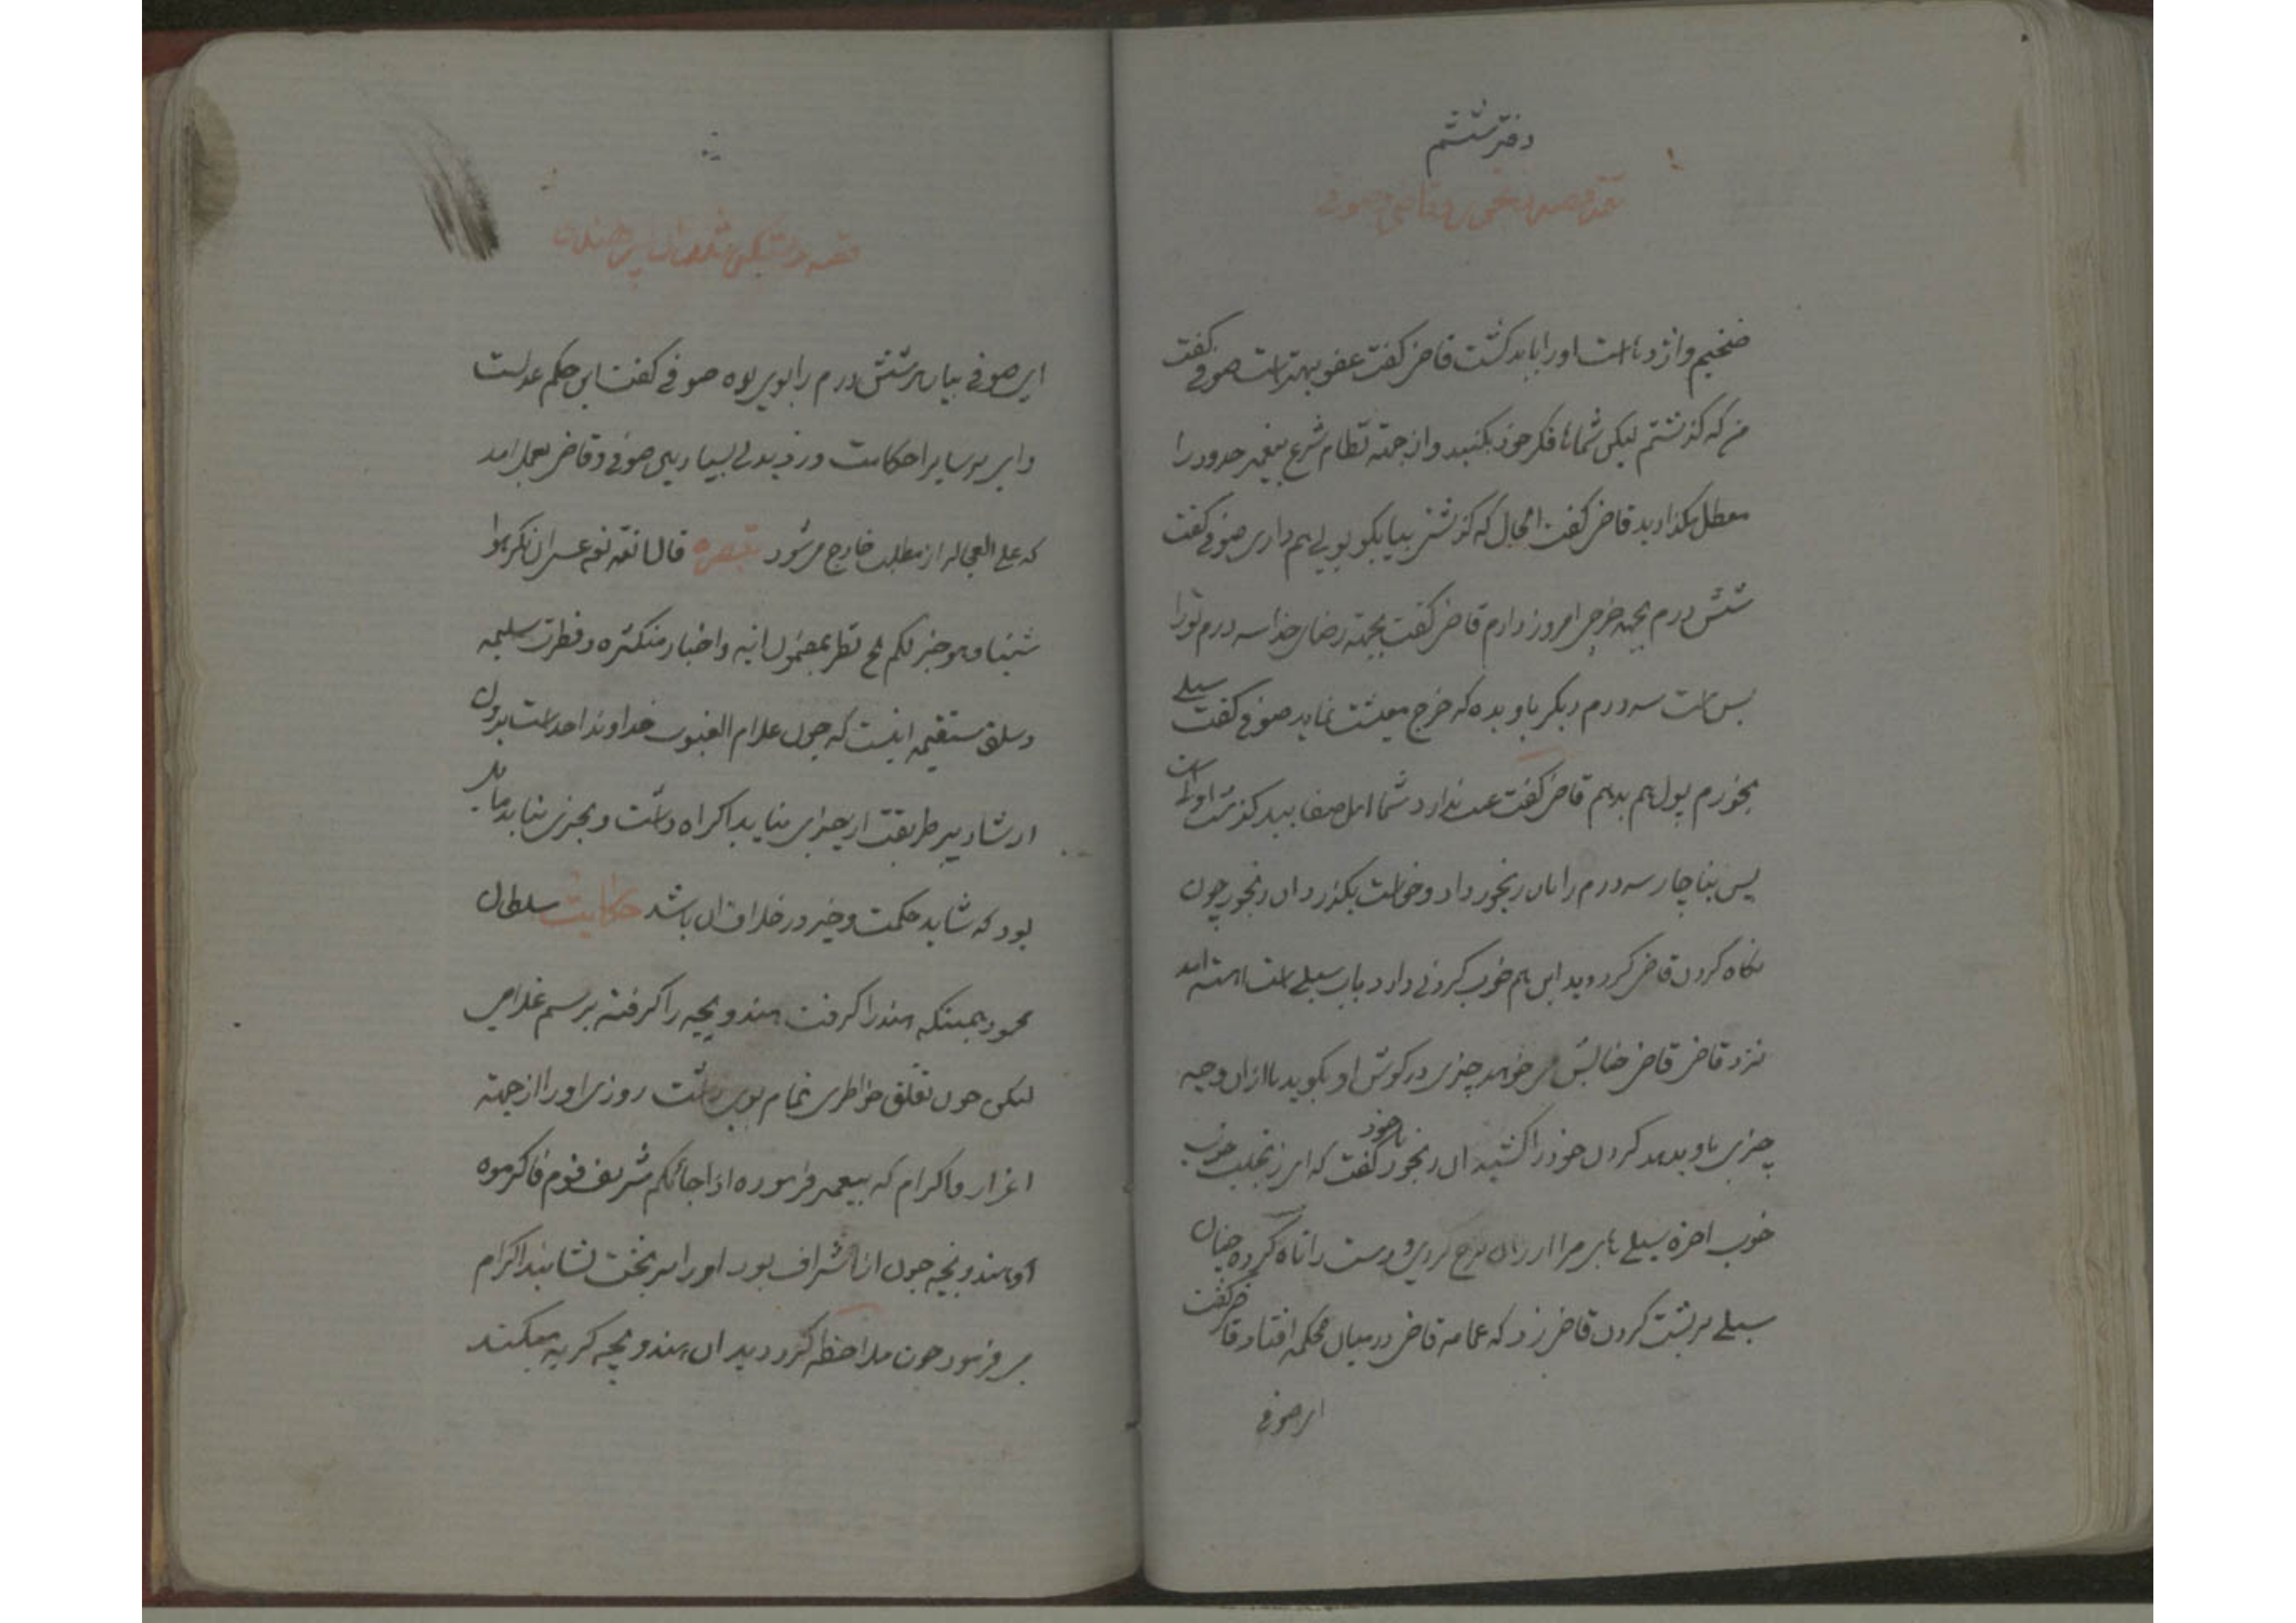 دفتر ششم
ضخیم و از دنیا است او را باید کشت قاضی کفت عفو بهتر است صوفی کفت
من که کذشتم لیکن شماها فکر خود بکنید و از جهته نظام شرع پیغمبر حدود را
معطل مکذارید قاضی کفت الحال که کذشتی بیا بکو پولی هم داری صوفی کفت
شش درم بجهته خرجی امروز دارم قاضی کفت بجهته رضای خدا سه درم تو را
بس است سه درم دیکر باو بده که خرج معیشت نماید صوفی کفت سیلی
بخورم پول هم بدهم قاضی کفت عیب ندارد شما اهل صفایید کذشت اولی است
پس بناچار سه درم را بان رنجور داد و خواست بکذرد ان رنجور چون
نکاه کردن قاضی کرد دید این هم خوب کردنی دارد باب سیلی است اهسته امد
نزد قاضی قاضی خیالش می خواهد چیزی در کوش او بکوید یا از ان وجه
چیزی باو بدهد کردن خود را کشید ان رنجور با خود کفت که این نجیب خوب
خوب اجره سیلی های مرا ارزان نرخ کردی و دست را تاه کرده چنان
سیلی بر پشت کردن قاضی زد که عمامه قاضی در میان محکمه افتاد قاضی کفت
ای صوفی
ای صوفی بیا این شش درم را بوی بده صوفی کفت این حکم عدلست
و این بر سایر احکامت ورزیدی بسیار بین صوفی و قاضی بعمل امد
که علی العجاله از مطلب خارج می شود تبصره قال الله عسی ان تکرهوا
شیئا و هو خیر لکم نظر بمضمون ایه و اخبار متکثره و فطرت سلیمه
و سلیقه مستقیمه اینست که چون علام الغیوب خداوند احد است بدون
ارشاد پیر طریقت از چیزی نباید اکراه داشت و بچیزی نباید مایل
بود که شاید حکمت و خیر در خلاف ان باشد حکایت سلطان
محمود همینکه هند را کرفت هندو بچه را کرفته برسم غلامی
لیکن چون تعلق خواطری تمام بوی داشت روزی او را از جهته
اعزاز و اکرام که پیغمبر فرموده اذا جائکم شریف قوم فاکرموه
او هندو بچه چون از اشراف بود او را بر تخت نشانید اکرام
می فرمود چون ملاحظه کرد دید ان هندو بچه کریه میکند